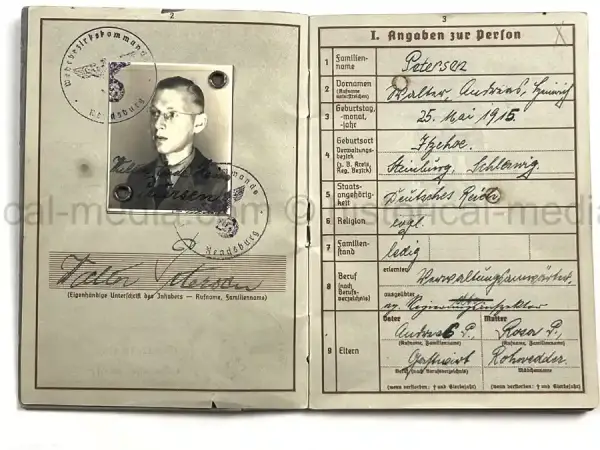 2
Wehrbezirkskommando
Rendsburg
Wehrbezirkskommando
Rendsburg
Walter Petersen
(Eigenhändige Unterschrift des Inhabers — Rufname, Familienname)
3
I. Angaben zur Person
1 Familien-name Petersen
2 Vornamen (Rufname unterstreichen) Walter, Andreas, Heinrich
3 Geburtstag, -monat, -jahr 25. Mai 1915.
4 Geburtsort Itzehoe.
Verwaltungs-bezirk (z. B. Kreis, Reg. Bezirk) Steinburg, Schleswig.
5 Staats-angehörig-keit Deutsches Reich
6 Religion evgl.
7 Familien-stand ledig
8 Beruf (nach Berufs-verzeichnis) erlernter Verwaltungsanwärter,
ausgeübter Regierungsinspektor
9 Eltern
Vater Mutter
Andreas P., Rosa P.,
(Rufname, Familienname) (Rufname, Familienname)
Gastwirt Rohwedder
Beruf (nach Berufsverzeichnis) Mädchenname
(wenn verstorben: † und Sterbejahr) (wenn verstorben: † und Sterbejahr)
cal-media.com © historical-media